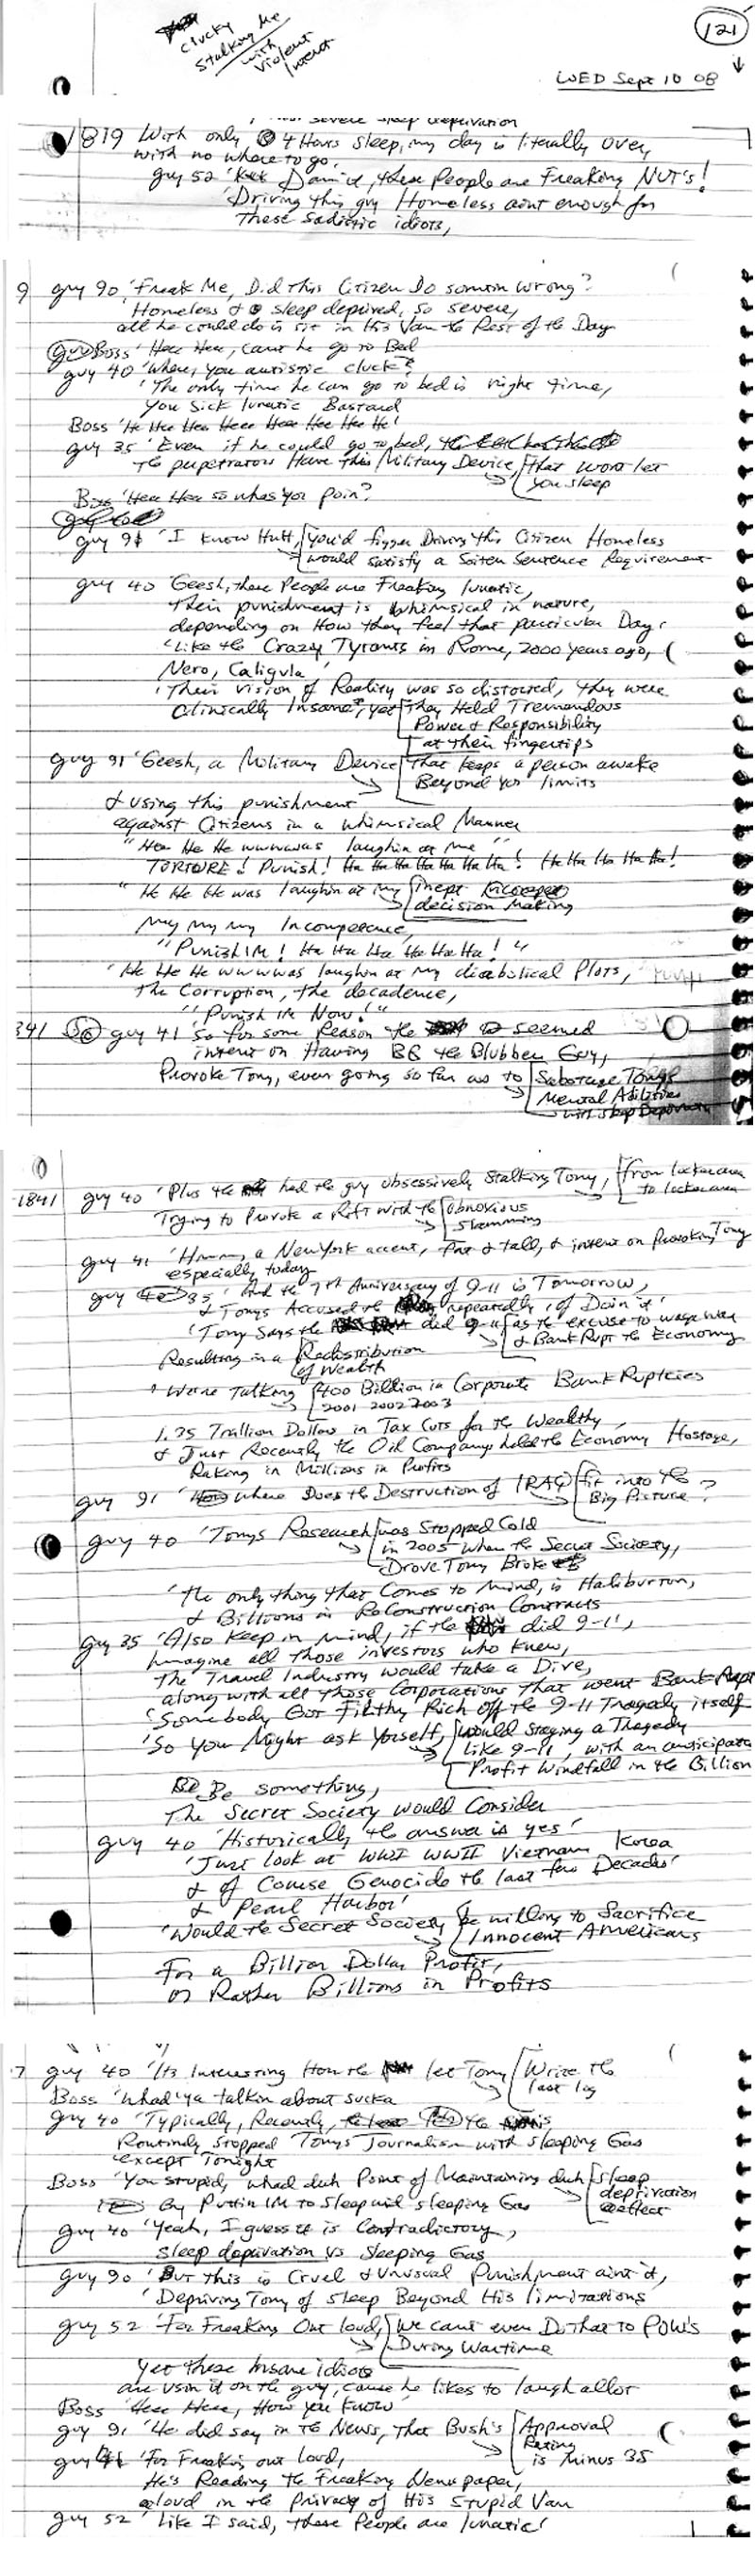 Clucky
Stalking Me
with
Violent
Intent
121
WED Sept 10 08
severe sleep deprivation
1819 With only 4 Hours sleep, my day is literally over,
with no where to go.
guy 52 'Damit, these People are Freaking NUT's!
'Driving this guy Homeless aint enough for
These Sadistic idiots,
9 guy 90 'Freak Me, Did This Citizen Do somtin wrong?
Homeless & sleep deprived, so severe,
all he could do is sit in His Van the Rest of the Day
Boss 'Hee Hee, cant he go to Bed
guy 40 'Where, you autistic cluck?
'The only time he can go to bed is night time,
You sick lunatic Bastard
Boss 'He Hee Hee Heee Heee Hee Hee He!
guy 35 'Even if he could go to bed,
The perpetrators Have this Military Device, that wont let
you sleep
Boss 'Hee Hee so whas your poin?
guy 91 'I know Hutt, you'd figger Driving this Citizen Homeless
would satisfy a Soiten Sentence Requirement
guy 40 'Geesh, these People are Freaking lunatic,
Their punishment is whimsical in nature,
depending on How they feel that particular Day,
'Like the Crazy Tyrants in Rome, 2000 years ago,
Nero, Caligula'
'Their vision of Reality was so distorted, they were
Clinically Insane, yet They Held Tremendous
Power & Responsibility
at their fingertips
guy 91 'Geesh, a Military Device That keeps a person awake
Beyond your limits
& using this punishment
against Citizens in a whimsical Manner
"Hee He He wwwwas laughin at me"
TORTURE! Punish! Ha Ha Ha Ha Ha Ha Ha! Ha Ha Ha Ha Ha!
"He He He was laughin at my inept
decision Making
My my my Incompetence,
"Punish IM! Ha Ha Ha Ha Ha Ha!"
'He He He wwwwas laughin at my diabolical Plots,
The Corruption, the decadence,
"Punish IM Now!"
341 guy 41 'So for some Reason the seemed
intent on Having BG the Blubber Guy,
Provoke Tony, even going so far as to Sabotage Tonys
Mental Abilities
with sleep Deprivation
1841 guy 40 'Plus the had the guy obsessively Stalking Tony, from locker area
to locker area
Trying to Provoke a Rift with the obnoxious
slamming
guy 41 'Hmmm, a New York accent, fat & tall, & intent on Provoking Tony
especially today
guy 35 'And the 7th Anniversary of 9-11 is Tomorrow,
& Tonys Accused the repeatedly, of Doin it'
'Tony Says the did 9-11 as the excuse to wage war
& BankRupt the Economy
Resulting in a Redistribution
of wealth
'Were Talking 400 Billion in Corporate BankRuptcies
2001 2002 2003
1.35 Trillion Dollars in Tax Cuts for the Wealthy
& Just Recently the Oil Companys held the Economy Hostage,
Raking in Millions in Profits
guy 91 'Where Does the Destruction of IRAQ fit into the
Big Picture?
guy 40 'Tonys Research was Stopped Cold
in 2005 when the Secret Society,
Drove Tony Broke
'The only thing that Comes to Mind, is Haliburton,
& Billions in ReConstruction Contracts
guy 35 'Also Keep in Mind, if the did 9-11,
Imagine all those investors who knew,
The Travel Industry would take a Dive,
along with all those Corporations that went BankRupt
'Somebody Got Filthy Rich off the 9-11 Tragedy itself
'So you Might ask Yorself, would staging a Tragedy
like 9-11, with an anticipated
Profit Windfall in the Billion
Be Be something,
The Secret Society would Consider
guy 40 'Historically the answer is yes'
'Just look at WWI WWII Vietnam Korea
& of Course Genocide the last few Decades'
& Pearl Harbor'
'Would the Secret Society be willing to Sacrifice
Innocent Americans
For a Billion Dollar Profit,
or Rather Billions in Profits
7 guy 40 'Its Interesting How the let Tony Write the
last log
Boss 'Whad ya talkin about sucka
guy 40 'Typically, Recently, the
Routinely stopped Tonys Journalism with sleeping Gas
except Tonight
Boss 'You stupid, whad duh Point of Maintaining duh sleep
deprivation
effect
By Puttin IM to Sleep wid sleeping Gas
guy 40 'Yeah, I guess it is Contradictory,
Sleep deprivation vs Sleeping Gas
guy 90 'But this is Cruel & Unusual Punishment aint it,
'Depriving Tony of sleep Beyond His limitations
guy 52 'For Freaking Out loud, we cant even Do that To POW's
During Wartime
Yet these Insane idiots
are usin it on the guy, cause he likes to laugh allot
Boss 'Hee Hee, How you Know'
guy 91 'He did say in TG News, That Bush's Approval
Rating
is Minus 35
guy 41 'For Freakin out loud,
He's Reading the Freaking Newspaper,
aloud in the Privacy of His Stupid Van
guy 52 'Like I said, these People are lunatic'